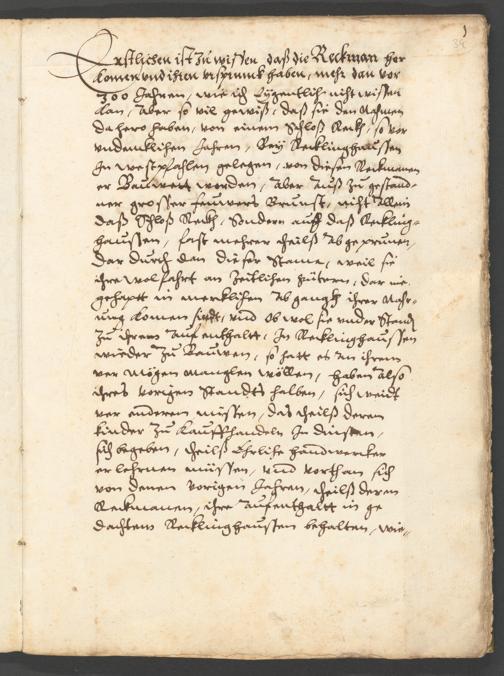 34
Erstlichen ist zu wissen, daß die Reckman her
komen vnd ihren vrsprunck haben, mehr dan vor
300 Jahren, wie ich Eÿgentlich nicht wissen
kan, Aber so vil gewiß, daß sie den Nahmen
dahero haben, von einem Schloß Reck, so vor
vndencklichen Jahren, Beÿ Recklinghaussen
In westpfahlen gelegen, von diesen Reckmanen
er Bauwett worden, Aber Auß zu gestand-
ner grosser feuwers Brunst, nicht Allein
daß Schloß Reck, Sondern auch daß Reckling-
haussen, fast mehrer theilß Abgeprunen,
Dar durch dan dieser Stame, weil sie
ihre wolfahrt an Zeitlichen gütern, dar nie
gehaptt in mercklichen Abgangk ihrer Nahr-
ung komen sindt, vnd Ob wol sie vnder Standen
zu ihrem Auffenthaltt, In Recklinghaussen
wieder zu Bauwen, so hatt es An ihrem
ver mögen manglen wöllen, haben Also
ihres vorigen Standts halben, sich weidt
ver anderen müssen, das theilß deren
kinder zu Kauffhandeln In dinsten,
sich begeben, theilß Ehrliche handwercker
erlehrnen müssen, vnd vorthan sich
von denen vorigen Jahren, theilß deren
Reckmanen, ihre Auffenthaltt in ge
dachtem Recklinghaussen behalten, wie-